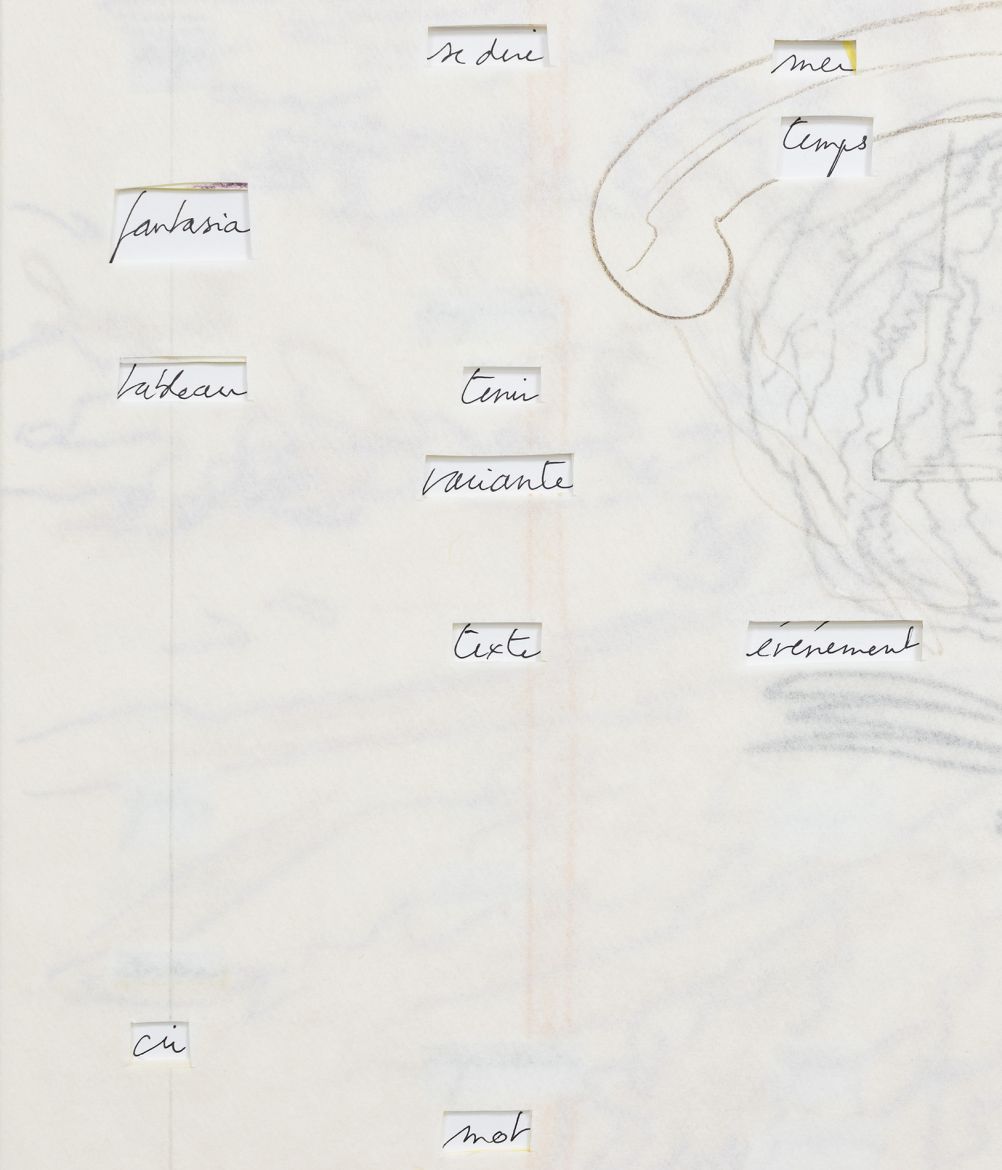 se dire
mer
temps
fantasia
tableau
tenir
variante
texte
événement
mot